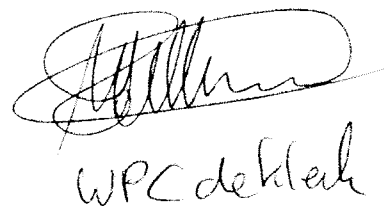 WPC de Klerk